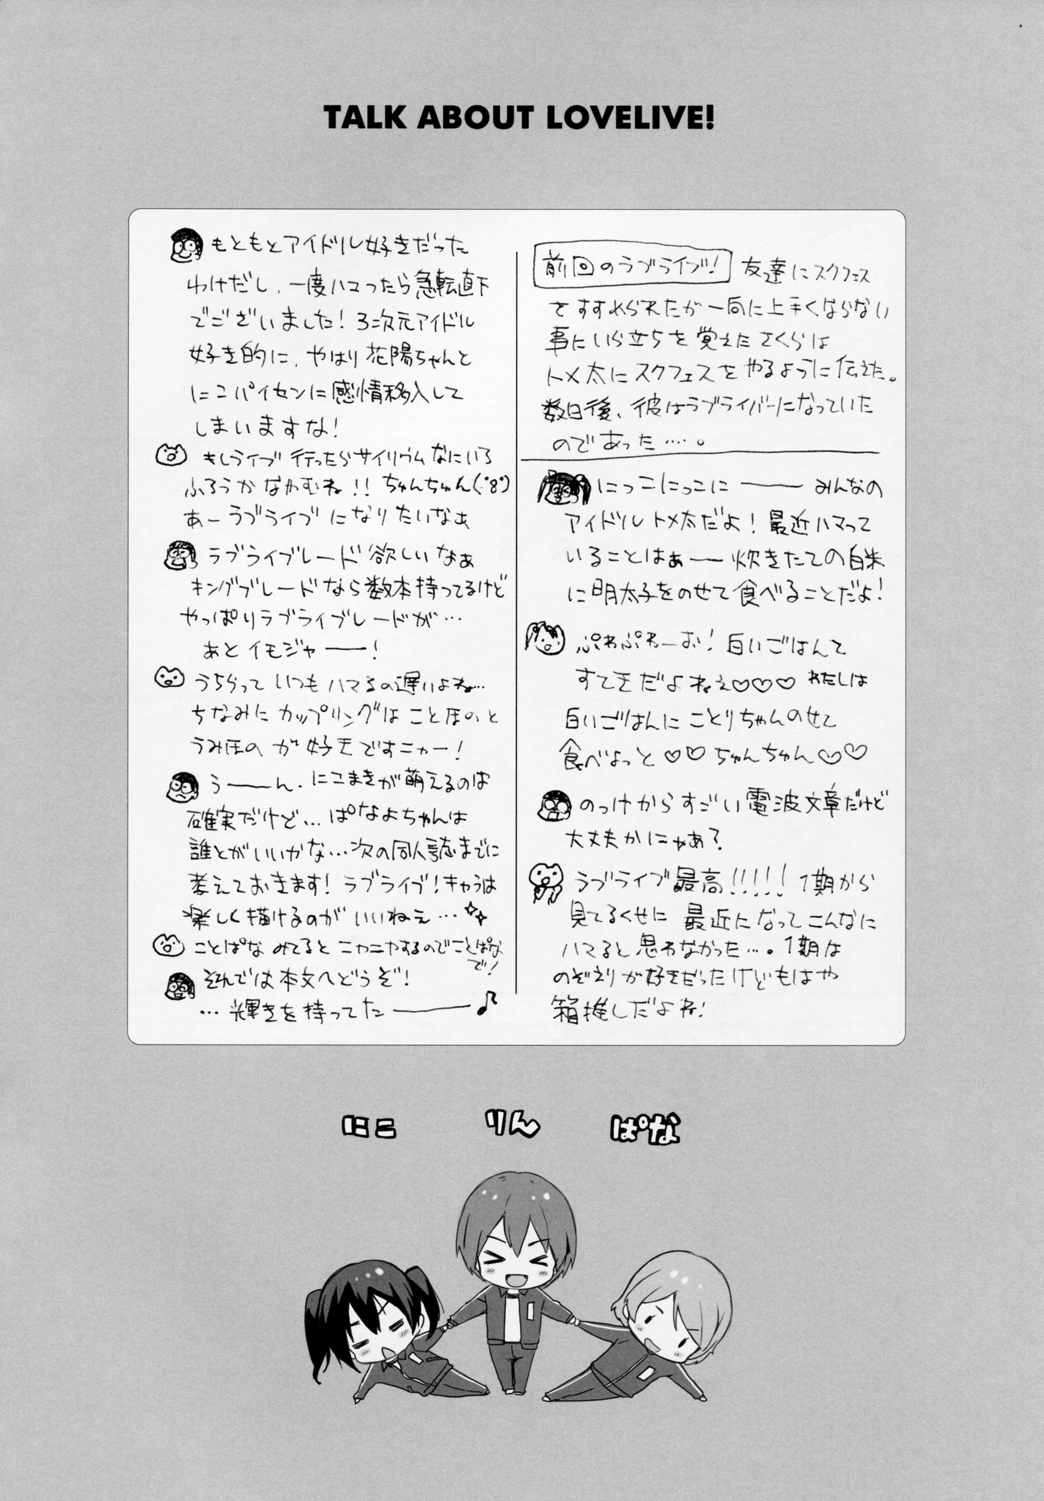 TALK ABOUT LOVELIVE!
前回のラブライブ! 友達にスクフェス
をすすめられたが一向に上手くならない
事にいら立ちを覚えたさくらは
トメ太にスクフェスをやるように伝えた。
数日後、彼はラブライバーになっていた
のであった…。
にっこにっこにーーー みんなの
アイドルトメ太だよ!最近ハマって
いることはぁー 炊きたての白米
に明太子をのせて食べることだよ!
ぷわぷわーお!白いごはんて
すてきだよねぇ♡♡♡ わたしは
白いごはんにことりちゃんのせて
食べよっと♡♡ちゅんちゅん♡♡
のっけからすごい電波文章だけど
大丈夫かにゃぁ?
ラブライブ最高!!!!! 1期から
見てるくせに最近になってこんなに
ハマると思わなかった…。1期は
のぞえりが好きだったけどもはや
箱推しだよね!
もともとアイドル好きだった
わけだし、一度ハマったら急転直下
でございました!3次元アイドル
好き的に、やはり花陽ちゃんと
にこパイセンに感情移入して
しまいますな!
もしライブ行ったらサイリウムなにいろ
ふろうかなやむね!!ちゅんちゅん(・8・)
あーラブライブになりたいなぁ
ラブライブレード欲しいなぁ
キングブレードなら数本持ってるけど
やっぱりラブライブレードが…
あとイモジャーー!
うちらっていつもハマるの遅いよね…
ちなみにカップリングはことほのと
うみほのが好きですニャー!
うーーん、にこまきが萌えるのは
確実だけど…ぱなよちゃんは
誰とがいいかな…次の同人誌までに
考えておきます!ラブライブ!キャラは
楽しく描けるのがいいねぇ…
ことぱなみてるとニヤニヤするのでことぱな
で!
それでは本文へどうぞ!
…輝きを待ってたーーー♪
にこ りん ぱな